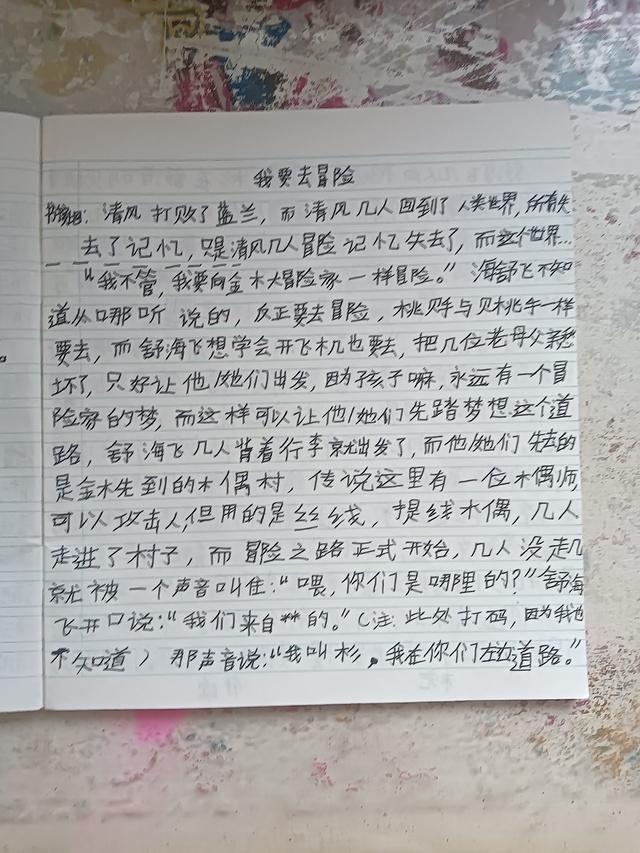 我要去冒险
清风打败了蓝兰，而清风几人回到了人类世界，所有失
去了记忆，只是清风几人冒险记忆失去了，而这个世界…
“我不管，我要向金木大冒险家一样冒险。”海舒飞不知
道从哪听说的，反正要去冒险，桃贝手与贝桃手一样
要去，而舒海飞想学会开飞机也要去，把几位老母父亲愁
坏了，只好让他/她们出发，因为孩子嘛，永远有一个冒
险家的梦，而这样可以让他/她们先踏梦想这个道
路，舒海飞几人背着行李就出发了，而他/她们先去的
是金木先到的木偶村，传说这里有一位木偶师
可以攻击人，但用的是丝线，提线木偶，几人
走进了村子，而冒险之路正式开始，几人没走几
就被一个声音叫住：“喂，你们是哪里的？”舒海
飞开口说：“我们来自**的。”（注：此处打码，因为我也
不知道）那声音说：“我叫杉，我在你们左边道路。”